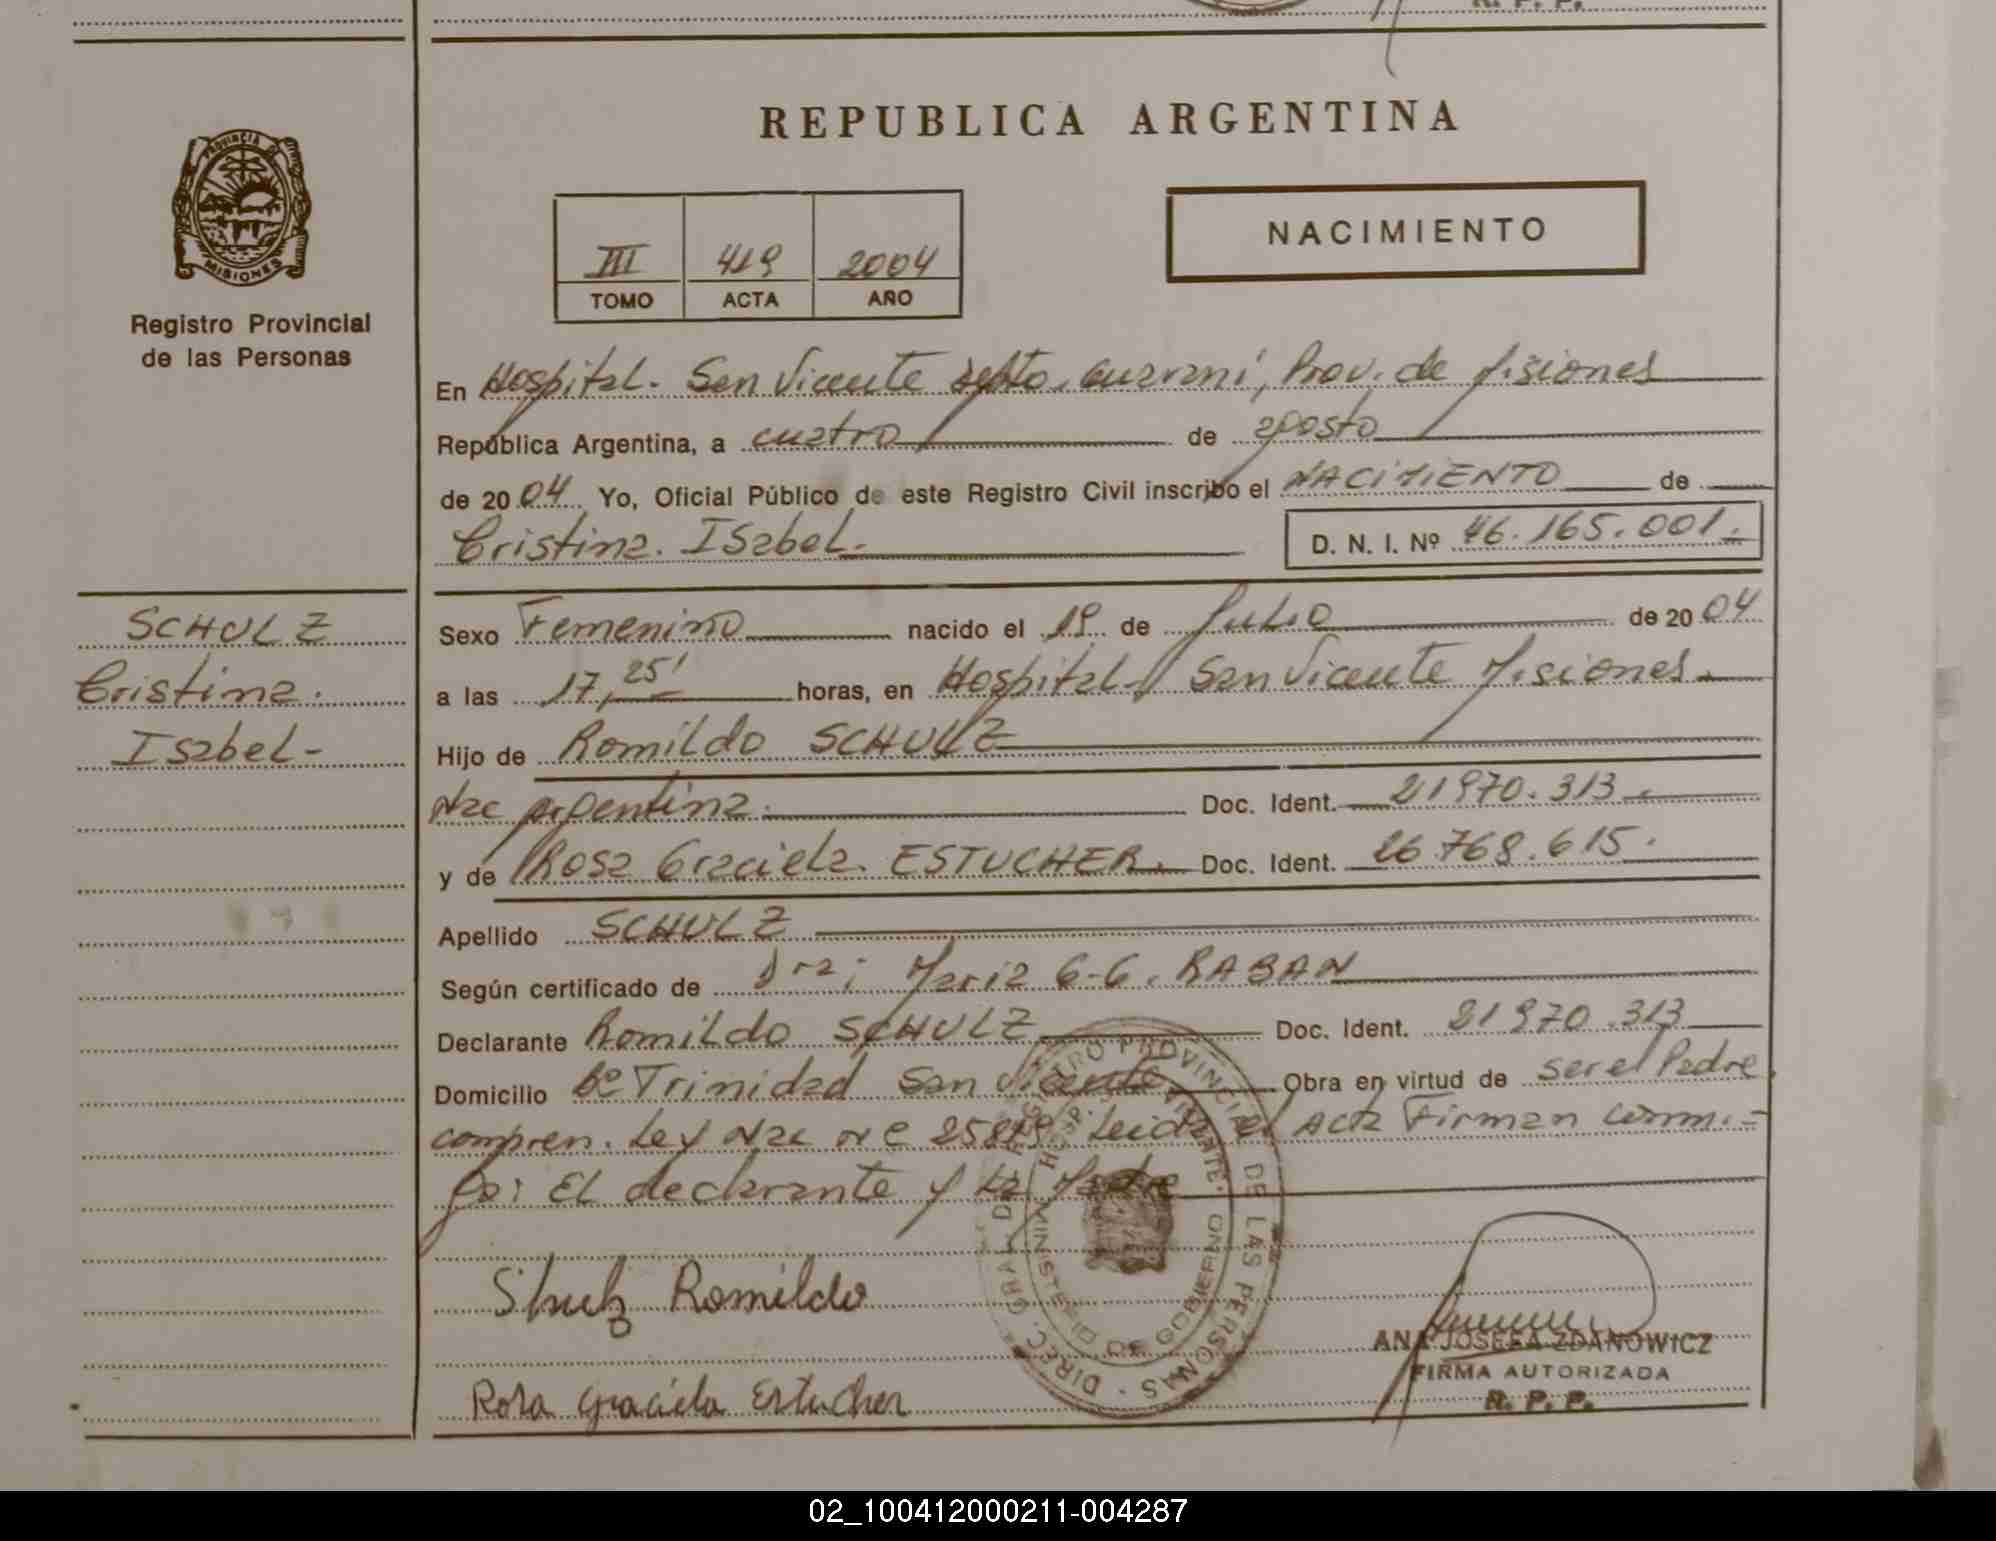 R. P. P.
REPUBLICA ARGENTINA
PROVINCIA DE
MISIONES
Registro Provincial
de las Personas
III 419 2004
TOMO ACTA AÑO
NACIMIENTO
En Hospital. San Vicente Depto. Guaraní, Prov. de Misiones
República Argentina, a cuatro de agosto
de 2004 Yo, Oficial Público de este Registro Civil inscribo el NACIMIENTO de
Cristina. Isabel.
D. N. I. Nº 46.165.001.-
SCHULZ
Cristina.
Isabel-
Sexo Femenino nacido el 19 de Julio de 2004
a las 17,25' horas, en Hospital- San Vicente Misiones.
Hijo de Romildo SCHULZ
Nac argentina. Doc. Ident. 21970.313.
y de Rosa Graciela. ESTUCHER. Doc. Ident. 26.768.615.
Apellido SCHULZ
Según certificado de Dra; Maria G-G. RABAN
Declarante Romildo SCHULZ Doc. Ident. 21970.313
Domicilio Bº Trinidad San Vicente Obra en virtud de ser el Padre.
compren. Ley Nac Nº Leida el Acta Firman conmi-
go: El declarante y La Madre
Shulz Romildo
Rosa Graciela Estucher
DIREC. GRAL. DEL REGISTRO PROVINCIAL DE LAS PERSONAS
HOSP. SAN VICENTE
MINISTERIO DE GOBIERNO
ANA JOSEFA ZDANOWICZ
FIRMA AUTORIZADA
R. P. P.
02_100412000211-004287